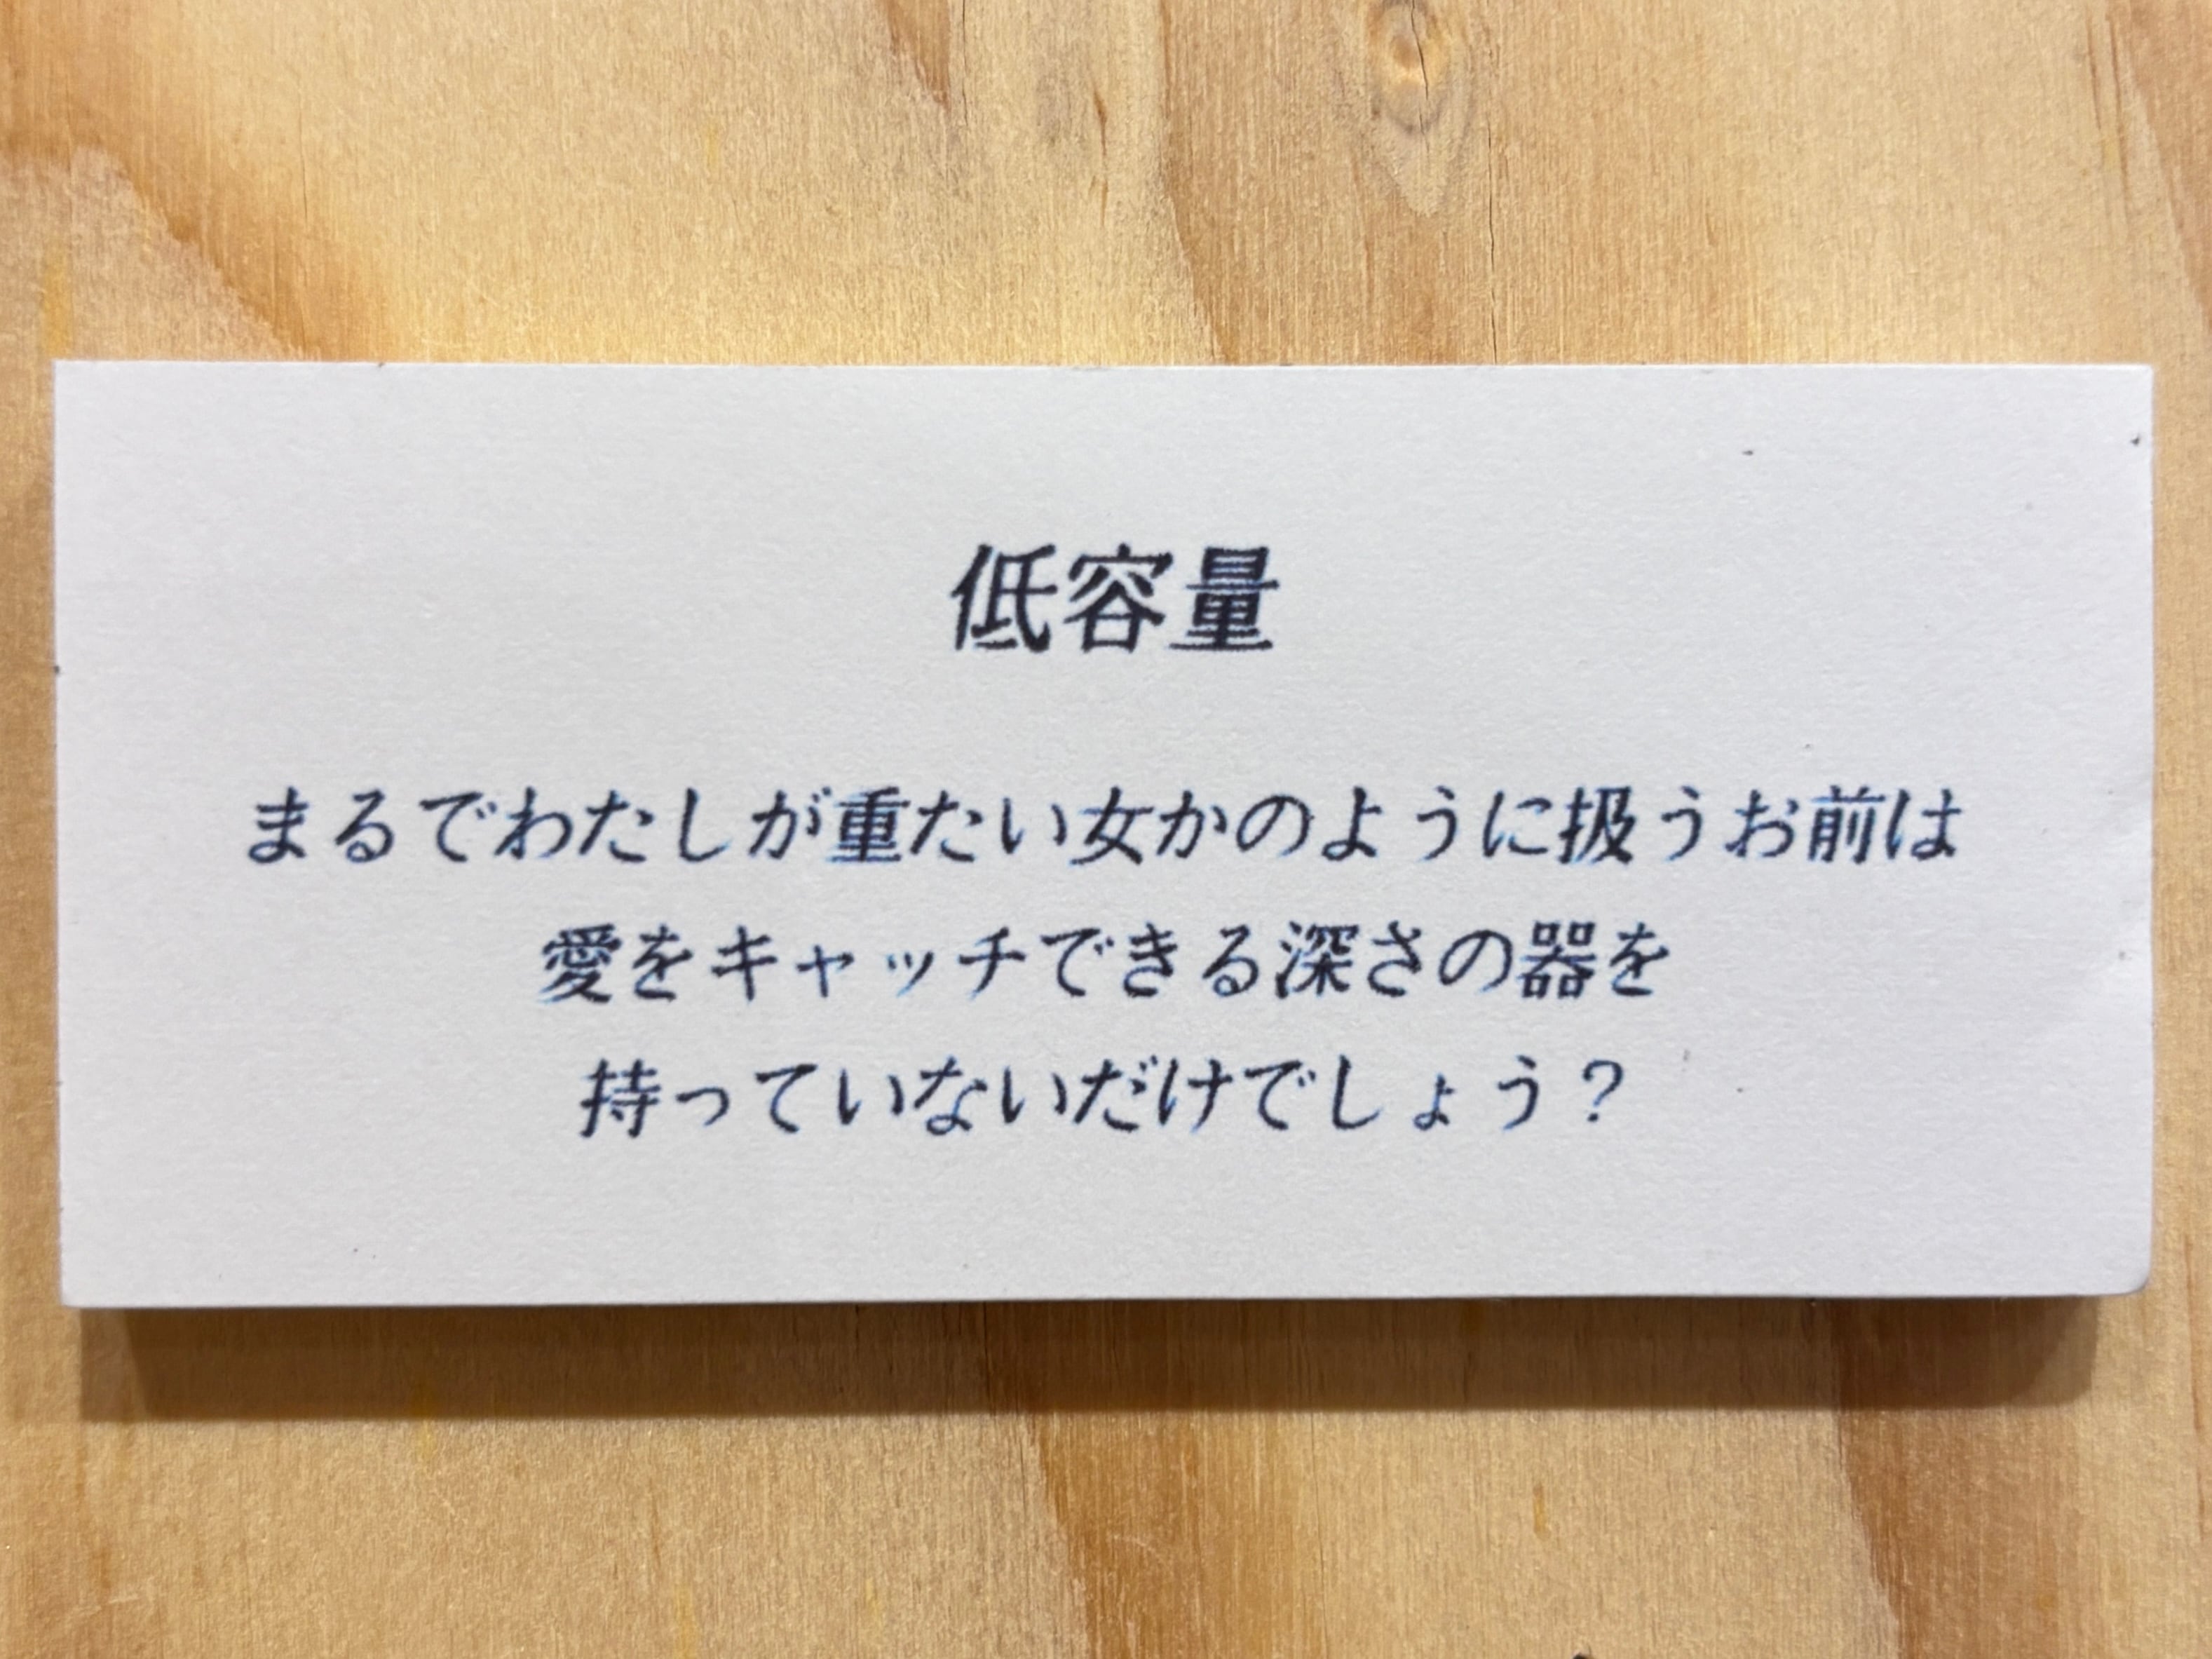 低容量
まるでわたしが重たい女かのように扱うお前は
愛をキャッチできる深さの器を
持っていないだけでしょう？